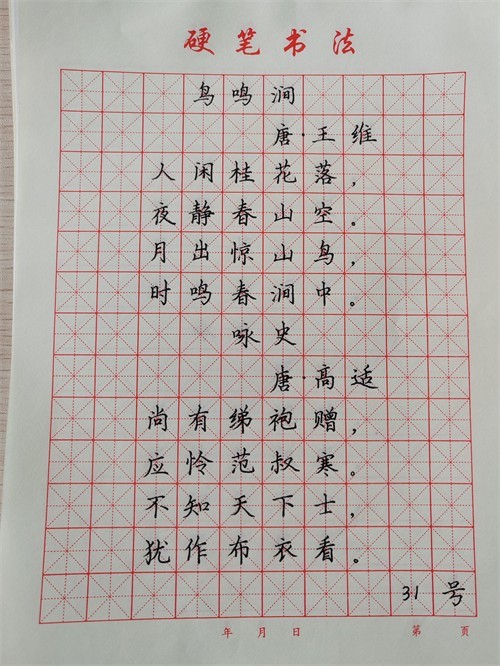 硬笔书法
鸟鸣涧
唐·王维
人闲桂花落，
夜静春山空。
月出惊山鸟，
时鸣春涧中。
咏史
唐·高适
尚有绨袍赠，
应怜范叔寒。
不知天下士，
犹作布衣看。
31号
年 月 日 第 页